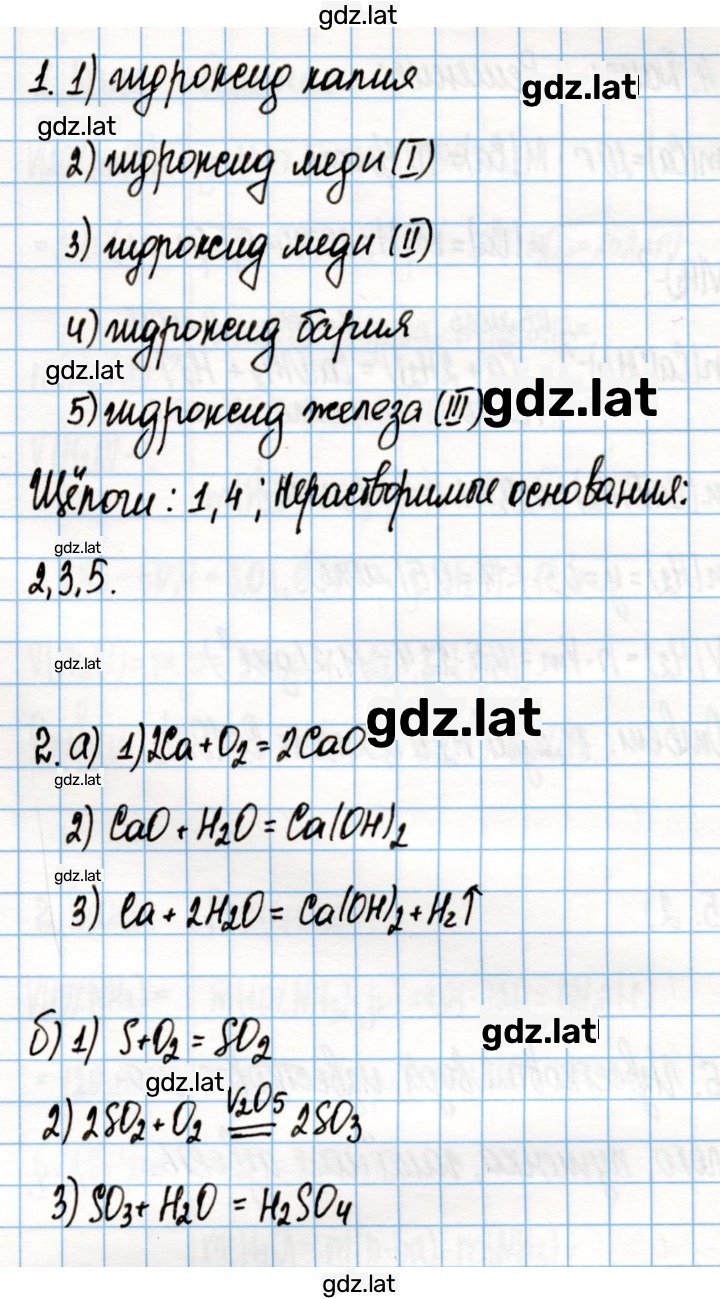 gdz.lat
1. 1) гидроксид калия gdz.lat
gdz.lat
2) гидроксид меди (I)
3) гидроксид меди (II)
4) гидроксид бария
gdz.lat
5) гидроксид железа (III) gdz.lat
Щёлочи: 1,4; Нерастворимые основания:
gdz.lat
2,3,5.
gdz.lat
2. а) 1) 2Ca + O₂ = 2CaO gdz.lat
gdz.lat
2) CaO + H₂O = Ca(OH)₂
gdz.lat
3) Ca + 2H₂O = Ca(OH)₂ + H₂↑
б) 1) S + O₂ = SO₂ gdz.lat
gdz.lat
V₂O₅
2) 2SO₂ + O₂ = 2SO₃
3) SO₃ + H₂O = H₂SO₄
gdz.lat